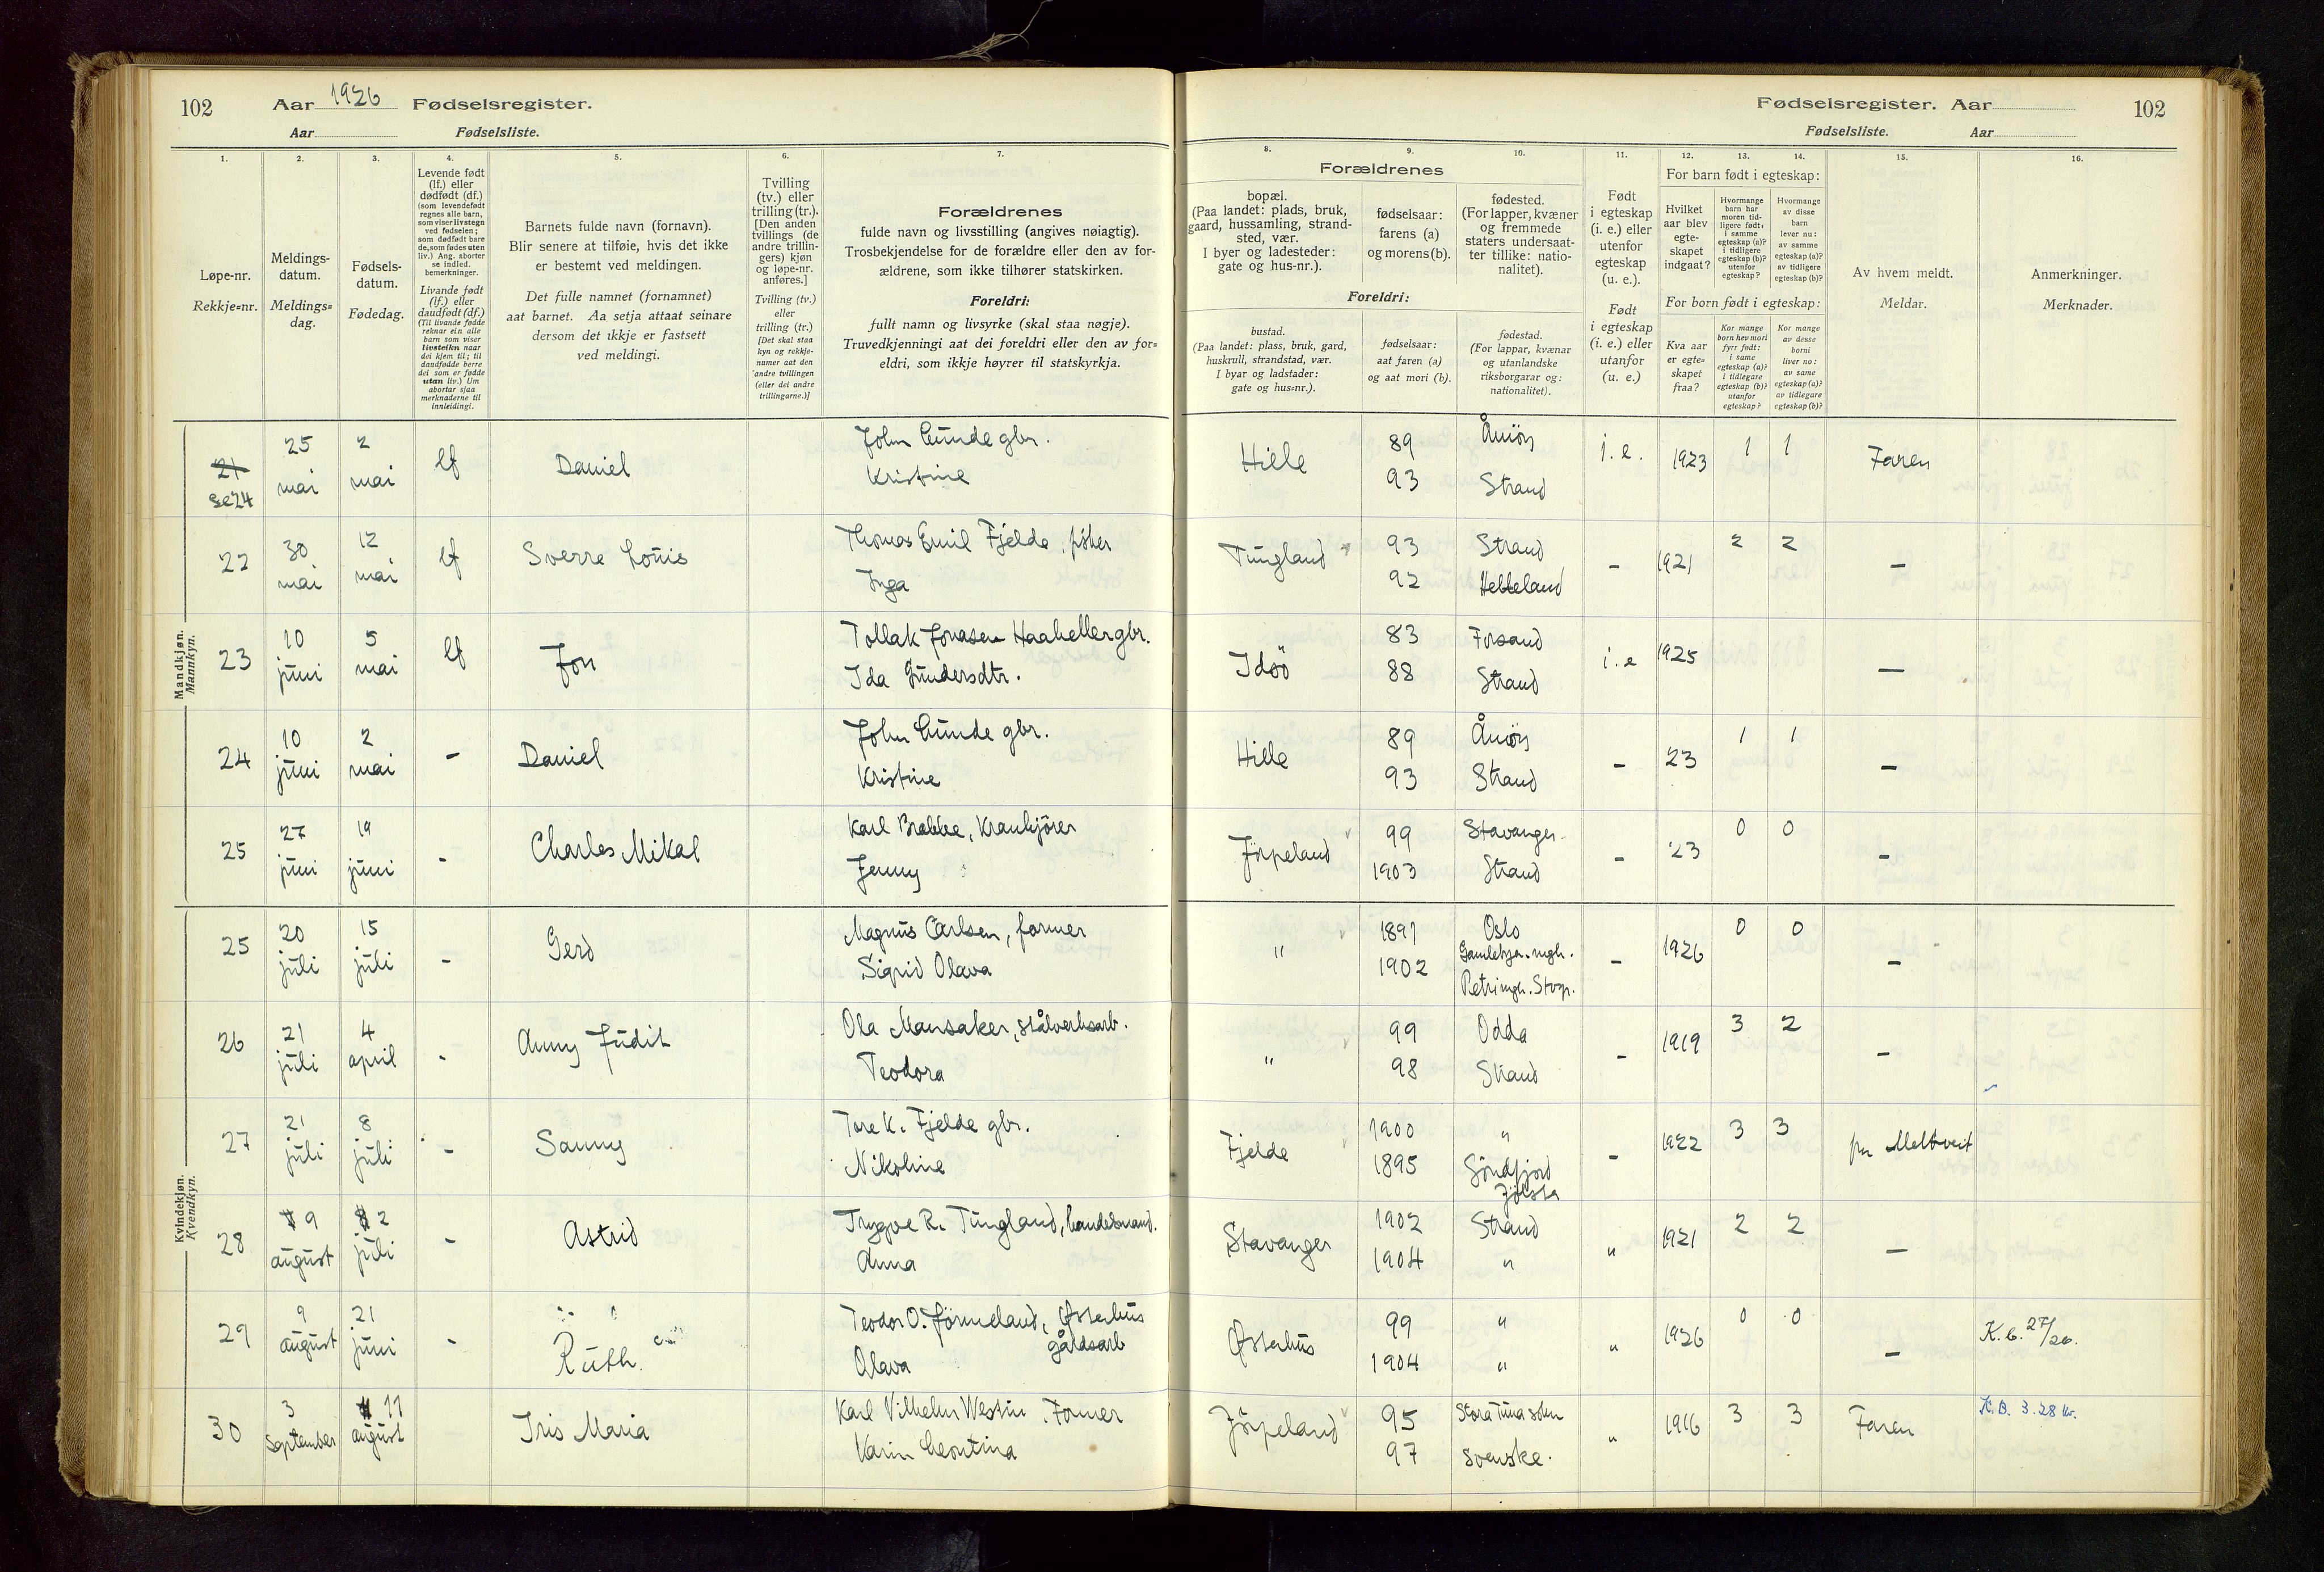 102 Aar 1926 Fødselsregister.
Aar Fødselsliste.
Fødselsregister. Aar 102
Fødselsliste. Aar
1. 2. 3. 4. 5. 6. 7. 8. 9. 10. 11. 12. 13. 14. 15. 16.
Løpe-nr.
Rekkje=nr.
Meldings-
datum.
Meldings=
dag.
Fødsels-
datum.
Fødedag.
Levende født
(lf.) eller
dødfødt (df.)
(som levendefødt
regnes alle barn,
som viser livstegn
ved fødselen;
som dødfødt bare
de, som fødes uten
liv.) Ang. aborter
se indled.
bemerkninger.
Livande født
(lf.) eller
daudfødt (df.)
(Til livande fødde
reknar ein alle
barn som viser
livsteikn naar
dei kjem til; til
daudfødde berre
dei som er fødde
utan liv.) Um
abortar sjaa
merknaderne til
innleidingi.
Barnets fulde navn (fornavn).
Blir senere at tilføie, hvis det ikke
er bestemt ved meldingen.
Det fulle namnet (fornamnet)
aat barnet. Aa setja attaat seinare
dersom det ikkje er fastsett
ved meldingi.
Tvilling
(tv.) eller
trilling (tr.).
[Den anden
tvillings (de
andre trillin-
gers) kjøn
og løpe-nr.
anføres.]
Tvilling (tv.)
eller
trilling (tr.)
[Det skal staa
kyn og rekkje-
numer aat den
andre tvillingen
(eller dei andre
trillingarne.)]
Forældrenes
fulde navn og livsstilling (angives nøiagtig).
Trosbekjendelse for de forældre eller den av for-
ældrene, som ikke tilhører statskirken.
Foreldri:
fullt namn og livsyrke (skal staa nøgje).
Truvedkjenningi aat dei foreldri eller den av for=
eldri, som ikkje høyrer til statskyrkja.
Forældrenes
bopæl.
(Paa landet: plads, bruk,
gaard, hussamling, strand-
sted, vær.
I byer og ladesteder:
gate og hus-nr.).
fødselsaar:
farens (a)
og morens (b).
fødested.
(For lapper, kvæner
og fremmede
staters undersaat-
ter tillike: natio-
nalitet).
Foreldri:
bustad.
(Paa landet: plass, bruk, gard,
huskrull, strandstad, vær.
I byar og ladstader:
gate og hus=nr.).
fødselsaar:
aat faren (a)
og aat mori (b).
fødestad.
(For lappar, kvænar
og utanlandske
riksborgarar og:
nationalitet).
Født
i egteskap
(i. e.) eller
utenfor
egteskap
(u. e.).
Født
i egteskap
(i. e.) eller
utanfor
(u. e.)
For barn født i egteskap:
Hvilket
aar blev
egte-
skapet
indgaat?
Hvormange
barn har
moren tid-
ligere født:
i samme
egteskap (a)?
i tidligere
egteskap (b)?
utenfor
egteskap?
Hvormange
av disse
barn
lever nu:
av samme
egteskap (a)?
av tidligere
egteskap (b)?
For born født i egteskap:
Kva aar
er egte=
skapet
fraa?
Kor mange
born hev mori
fyrr født:
i same
egteskap (a)?
i tidlegare
egteskap (b)?
utanfor
egteskap?
Kor mange
av desse
borni
liver no:
av same
egteskap (a)?
av tidlegare
egteskap (b)?
Av hvem meldt.
Meldar.
Anmerkninger.
Merknader.
Mandkjøn.
Mannkyn.
21 25 2 lf Daniel John Lunde gbr. Hille 89 Åmöy i. e. 1923 1 1 Faren
se 24 mai mai Kristine 93 Strand
22 30 12 lf Sverre Louis Thomas Emil Fjelde, fisker Tungland 93 Strand - 1921 2 2 -
mai mai Inga 92 Helleland
23 10 5 lf Jon Tollak Jonasen Haaheller gbr. Idsö 83 Forsand i. e 1925 -
juni mai Ida Gundersdtr. 88 Strand
24 10 2 - Daniel John Lunde gbr. Hille 89 Åmöy - 23 1 1 -
juni mai Kristine 93 Strand
25 27 19 - Charles Mikal Karl Brekke, Krankjörer Jörpeland 99 Stavanger - '23 0 0 -
juni juni Jenny 1903 Strand
Kvindekjøn.
Kvendkyn.
25 20 15 - Gerd Magnus Carlsen, former " 1897 Oslo - 1926 0 0 -
juli juli Sigrid Olava 1902 Gamlebyen mgh.
Petri mgh. Stvgr.
26 21 4 - Anny Judit Ola Mansaker, stålverksarb. " 99 Odda - 1919 3 2 -
juli april Teodora 98 Strand
27 21 8 - Sanny Tore K. Fjelde gbr. Fjelde 1900 " - 1922 3 3 pr Meltveit
juli juli Nikoline 1895 Söndfjord
Jölster
28 9 2 - Astrid Trygve R. Tungland, handelsmand. Stavanger 1902 Strand " 1921 2 2 -
august juli Anna 1904 "
29 9 21 - Ruth. Teodor O. Jörmeland, Østerhus Østerhus 99 " " 1926 0 0 - K. b. 27/26.
august juni gårdsarb
Olava 1904 "
30 3 11 Iris Maria Karl Vilhelm Westin. Former Jörpeland 95 Stora Tuna sokn " 1916 3 3 Faren K. B. 3.28 kr.
September august Karin Leontina 97 svenske.